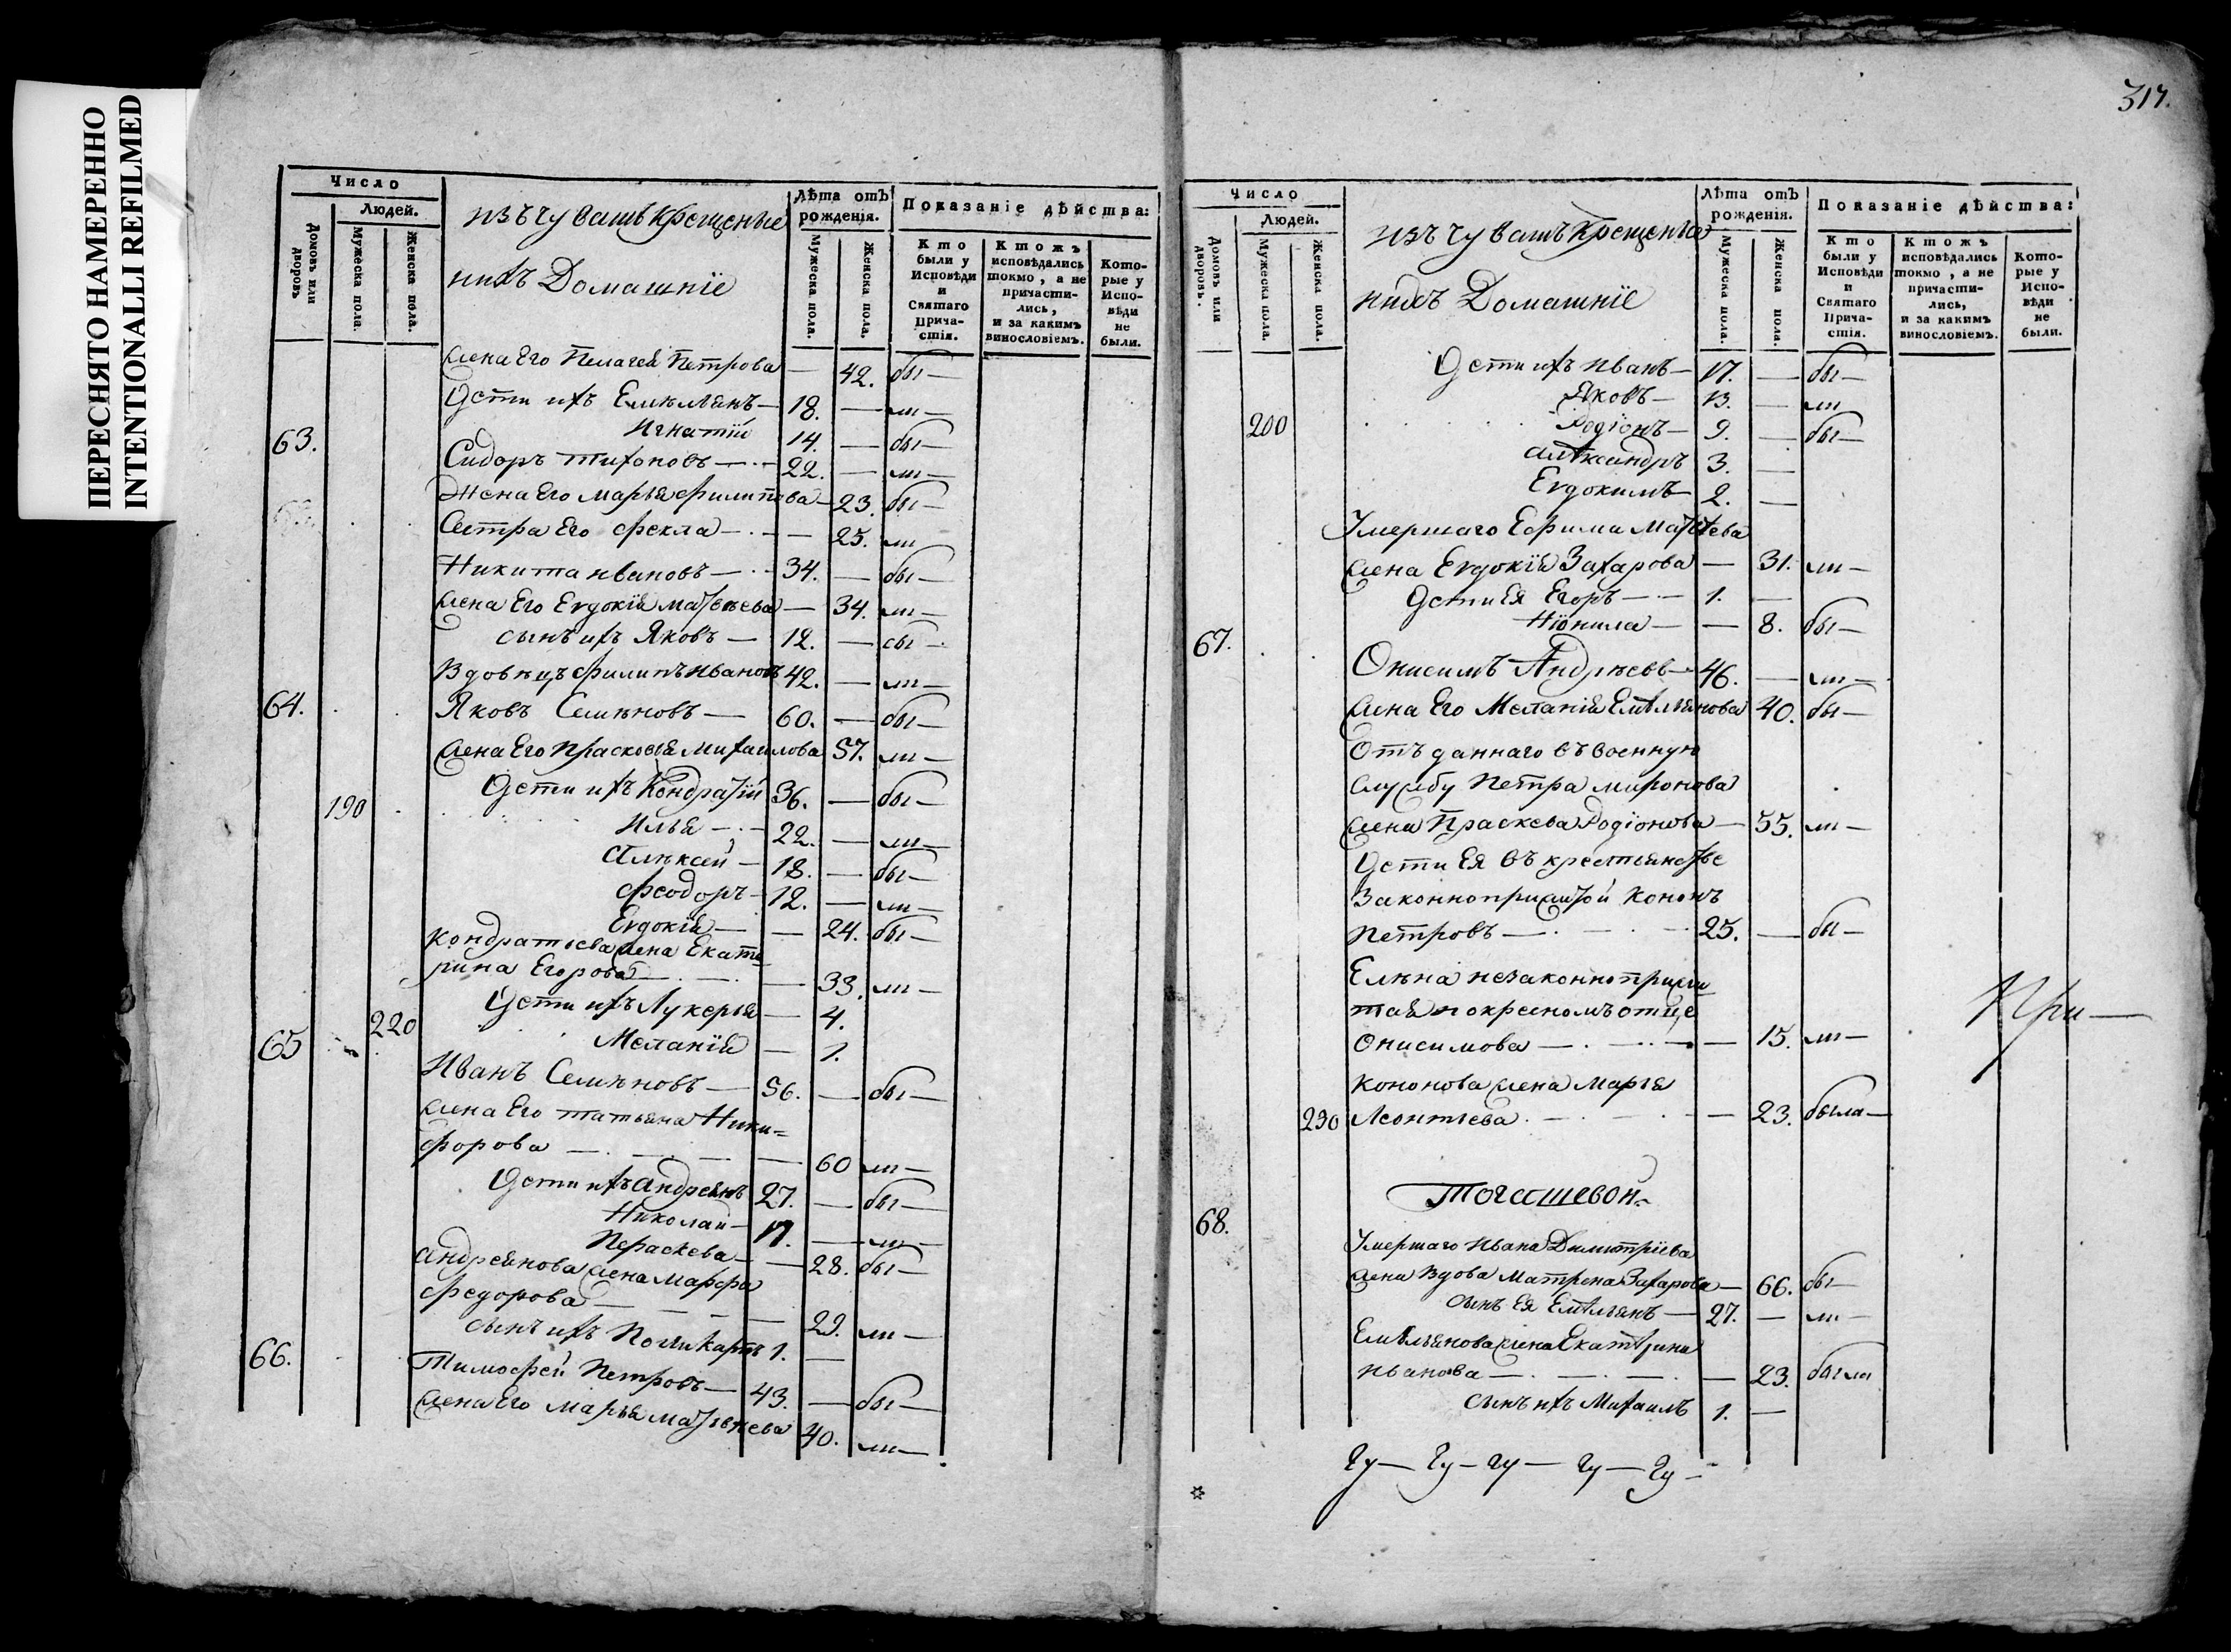 ПЕРЕСНЯТО НАМЕРЕННО
INTENTIONALLI REFILMED
Число
Людей.
Домовъ или дворовъ
Мужеска пола.
Женска пола.
изъ чувашъ крещеные
нихъ Домашніе
Лѣта отъ рожденія.
Мужеска пола.
Женска пола.
Показаніе дѣйства:
Кто были у Исповѣди и Святаго Причастія.
Ктожъ исповѣдались токмо, а не причастились, и за какимъ винословіемъ.
Которые у Исповѣди не были.
жена Его Пелагея Петрова — 42. бы—
Дети ихъ Емельянъ — 18. — ли—
Игнатій 14. — бы—
63. Сидоръ Тихоновъ — 22. — ли—
Жена Его Марья Филипова — 23. бы—
Сестра Его Фекла — 25. ли
Никита Ивановъ — 34. — бы—
жена Его Евдокія Матвеева — 34. ли—
сынъ ихъ Яковъ — 12. — бы—
Вдовецъ Филипъ Ивановъ 42. — ли—
64. Яковъ Семеновъ — 60. — бы—
жена Его Прасковья Михаилова 57. ли—
190 Дети ихъ Кондратій 36. — бы—
Илья — 22. — ли—
Алексей — 18. — бы—
Феодоръ — 12. — ли—
Евдокія — — 24. бы—
Кондратьева жена Екате
рина Егорова — — 33. ли—
Дети ихъ Лукерья — 4.
220 Меланія — 1.
65 Иванъ Семеновъ — 56. — бы—
жена Его Татьяна Ники=
форова — — 60 ли—
Дети ихъ Андреянъ 27. — бы—
Николай — 17. — ли—
Параскева — — 28. бы—
Андреянова жена Марфа
Федорова — — 29. ли—
сынъ ихъ Поликарпъ 1. —
66. Тимофей Петровъ — 43. — бы—
жена Его Марья Матвеева 40. ли—
317.
Число
Людей.
Домовъ или дворовъ.
Мужеска пола.
Женска пола.
изъ чувашъ крещеные
нихъ Домашніе
Лѣта отъ рожденія.
Мужеска пола.
Женска пола.
Показаніе дѣйства:
Кто были у Исповѣди и Святаго Причастія.
Ктожъ исповѣдались токмо, а не причастились, и за какимъ винословіемъ.
Которые у Исповѣди не были.
Дети ихъ Иванъ — 17. — бы—
Яковъ — 13. — ли
200 Родіонъ — 9. — бы—
Александръ 3. —
Евдокимъ 2. —
Умершаго Ефима Матвеева
жена Евдокія Захарова — 31. ли—
Дети Ея Егоръ — 1. —
Нїонила — — 8. бы—
67. Онисимъ Андреевъ — 46. — ли—
жена Его Меланія Емельянова 40. бы—
Отъ даннаго въ военную
службу Петра Миронова
жена Праскева Родіонова — 55. ли—
Дети Ея въ крестьянстве
Законноприжитой Кононъ
Петровъ — 25. — бы—
Елена незаконноприжи
тая по кресномъ отце
Онисимова — — 15. ли—
Кононова жена Марья
230 Леонтьева — — 23. была—
При—
68.
Умершаго Ивана Димитріева
жена Вдова Матрона Захарова — 66. бы—
сынъ Ея Емельянъ — 27. — ли—
Емельянова жена Екатерина
Иванова — — 23. была
сынъ ихъ Михаилъ 1. —
Чу— Чу— чу— чу— Чу—